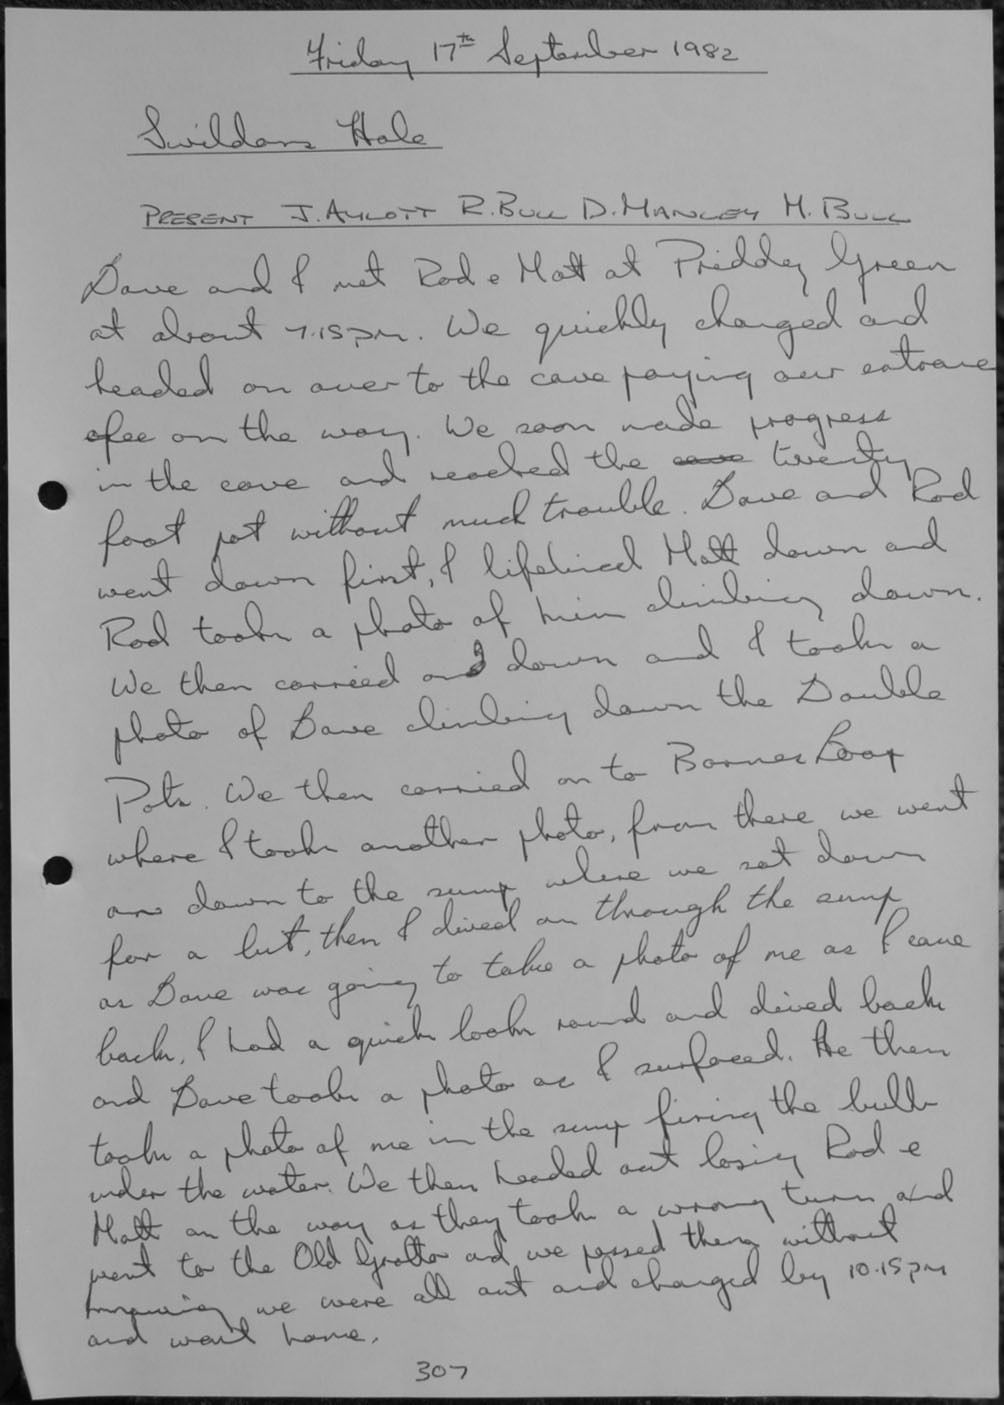 Friday 17th September 1982
Swildons Hole
PRESENT J. AYLOTT R. BULL D. MANLEY M. BULL
Dave and I met Rod & Matt at Priddy Green
at about 7.15pm. We quickly changed and
headed on over to the cave paying our entrance
fee on the way. We soon made progress
in the cave and reached the cave twenty
foot pot without much trouble. Dave and Rod
went down first, I lifelined Matt down and
Rod took a photo of him climbing down.
We then carried on down and I took a
photo of Dave climbing down the Double
Pots. We then carried on to Barnes Loop
where I took another photo, from there we went
on down to the sump where we sat down
for a bit, then I dived on through the sump
as Dave was going to take a photo of me as I came
back, I had a quick look round and dived back
and Dave took a photo as I surfaced. He then
took a photo of me in the sump firing the bulb
under the water. We then headed out losing Rod &
Matt on the way as they took a wrong turn and
went to the Old Grotto and we passed them without
knowing we were all out and changed by 10.15pm
and went home.
307